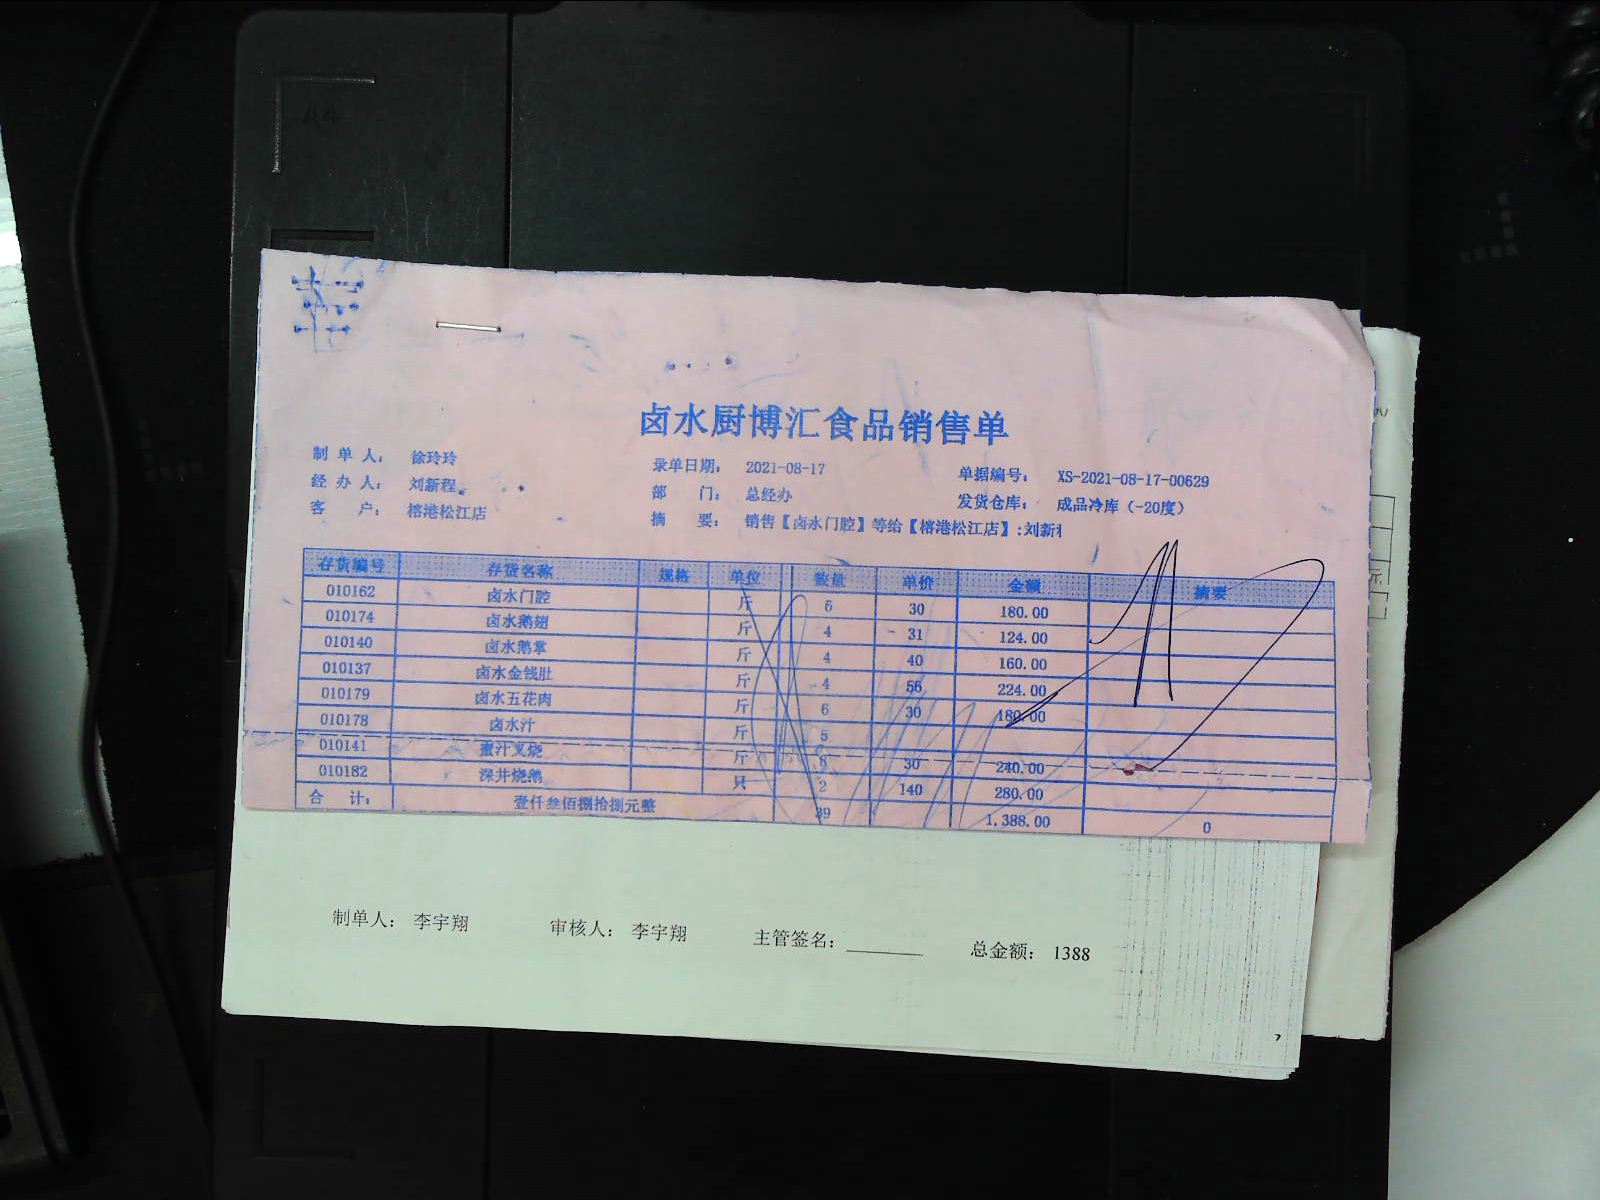 A4
卤水厨博汇食品销售单
制单人： 徐玲玲 录单日期： 2021-08-17 单据编号： XS-2021-08-17-00629
经办人： 刘新程 部门： 总经办 发货仓库： 成品冷库（-20度）
客户： 榕港松江店 摘要： 销售【卤水门腔】等给【榕港松江店】:刘新
存货编号 存货名称 规格 单位 数量 单价 金额 摘要
010162 卤水门腔 斤 6 30 180.00
010174 卤水鹅翅 斤 4 31 124.00
010140 卤水鹅掌 斤 4 40 160.00
010137 卤水金钱肚 斤 4 56 224.00
010179 卤水五花肉 斤 6 30 180.00
010178 卤水汁 斤 5
010141 蜜汁叉烧 斤 8 30 240.00
010182 深井烧鹅 只 2 140 280.00
合计： 壹仟叁佰捌拾捌元整 39 1,388.00 0
制单人： 李宇翔 审核人： 李宇翔 主管签名： 总金额： 1388